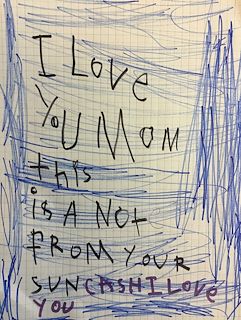 I Love
You Mom
this
is A Not
FROM YOUR
SUN CASH I LOVE
YOU